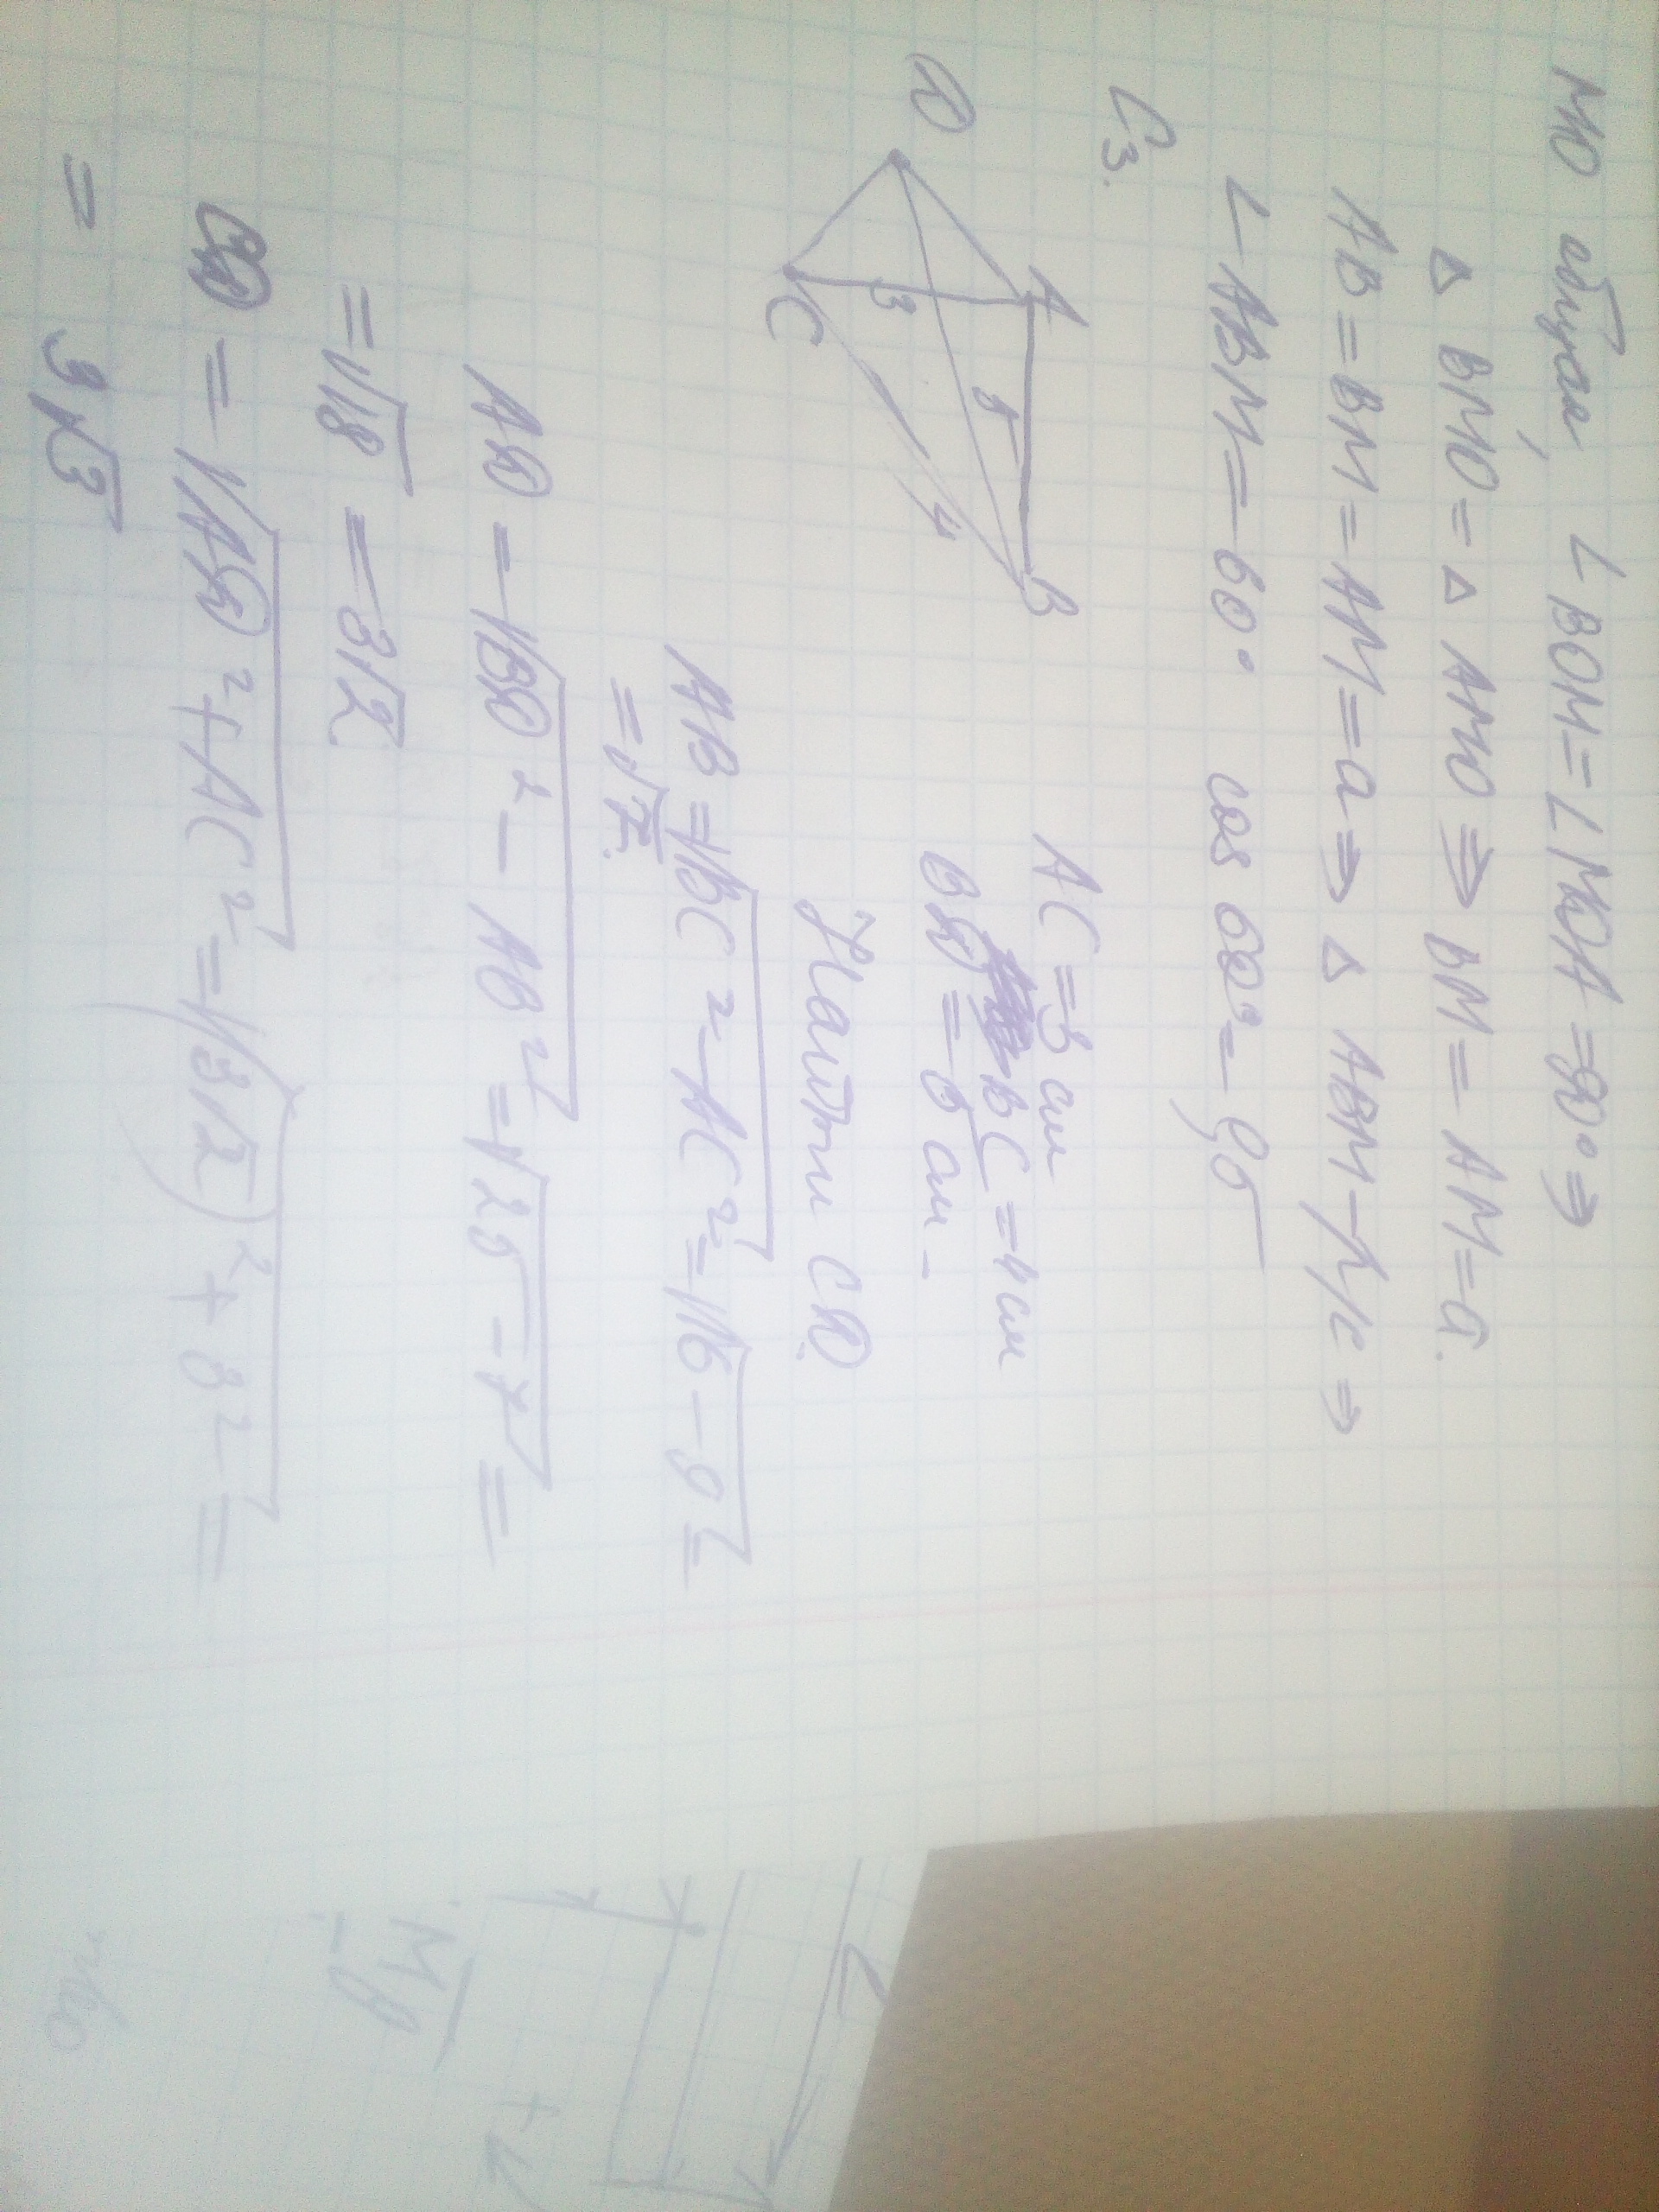 MO общая, ∠ BOM = ∠ MOA = 90° ⇒
△ BMO = △ AMO ⇒ BM = AM = a.
AB = BM = AM = a ⇒ △ ABM - р/с ⇒
∠ ABM = 60° cos 60° = 0,5
C3.
D
A
B
C
3
5
4
AC = 3 см
BC = 4 см
BD = 5 см
Найти CD.
AB = √BC² - AC² = √16 - 9 =
= √7.
AD = √BD² - AB² = √25 - 7 =
= √18 = 3√2
= √AD² + AC² = √(3√2)² + 3² =
=